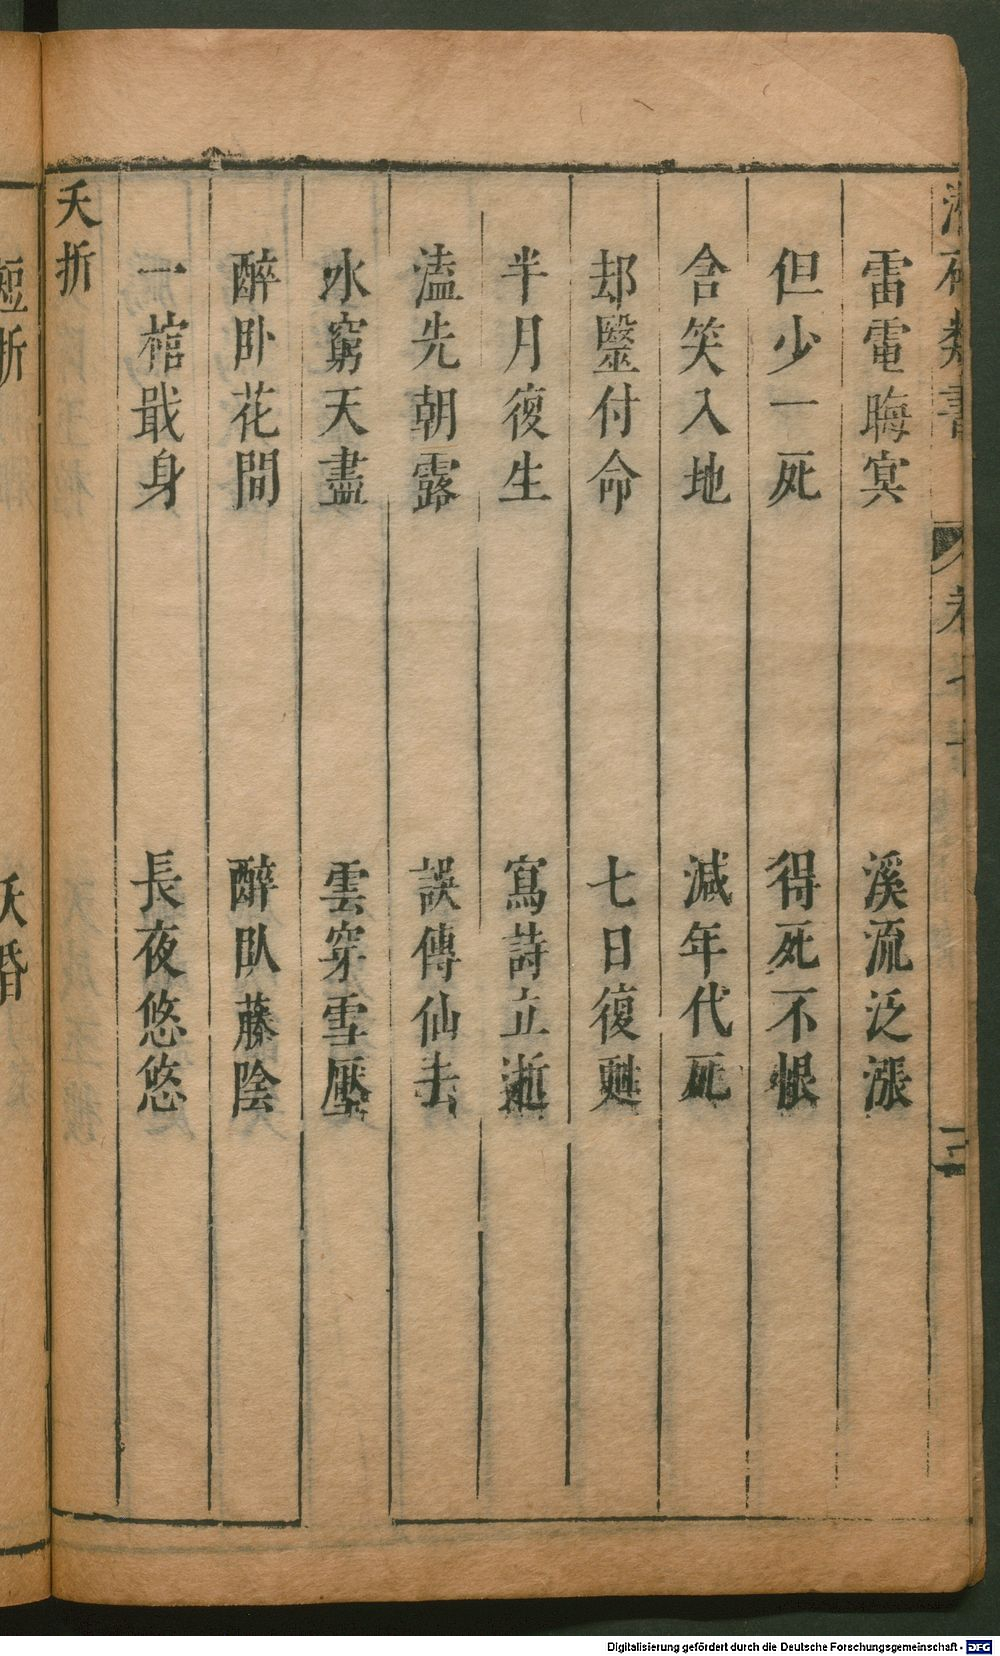 雷電晦冥　溪流泛漲
但少一死　得死不恨
含笑入地　減年代死
却毉付命　七日復甦
半月復生　寫詩立逝
溘先朝露　誤傳仙去
水窮天盡　雲穿雪壓
醉卧花間　醉臥藤陰
一棺戢身　長夜悠悠
夭折
短折　夭昏
Digitalisierung gefördert durch die Deutsche Forschungsgemeinschaft - DFG